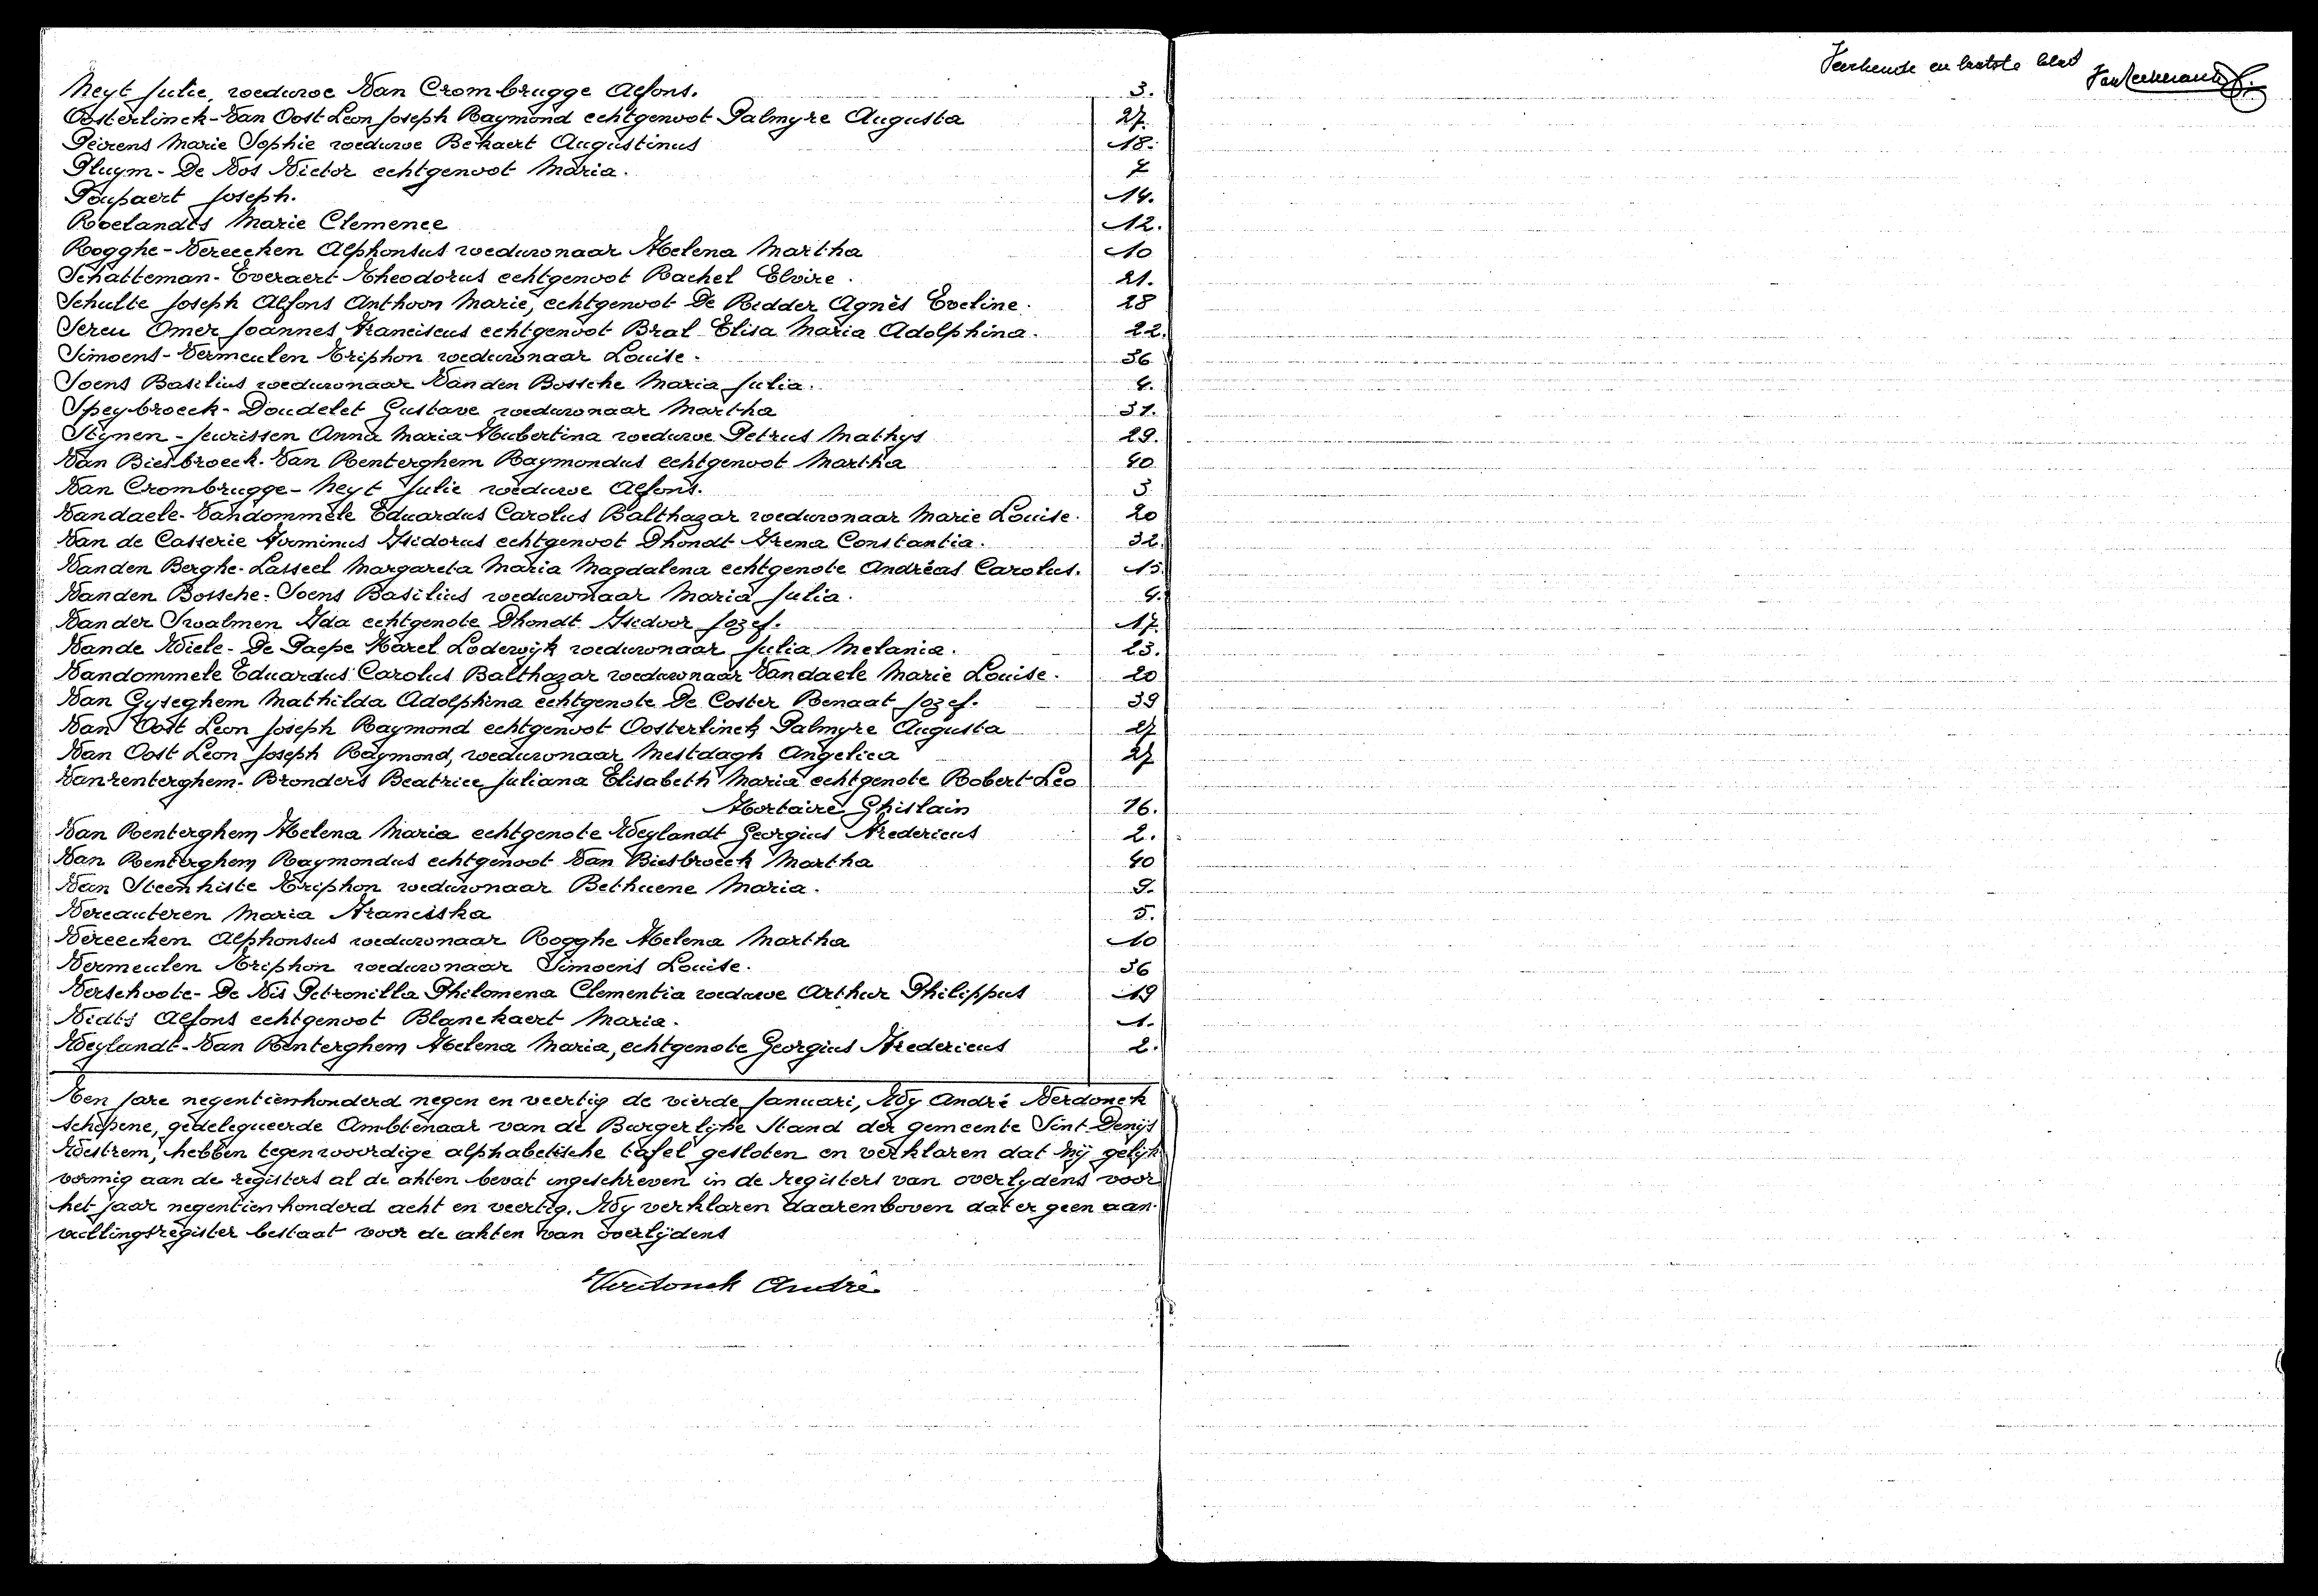 Neyt Julie, weduwe Van Crombrugge Alfons. 3.
Oosterlinck-Van Oost Leon Joseph Raymond echtgenoot Palmyre Augusta 27.
Peirens Marie Sophie weduwe Bekaert Augustinus 18.
Pluym-De Vos Victor echtgenoot Maria. 7
Poupaert Joseph. 14.
Roelandts Marie Clemence 12.
Rogghe-Vereecken Alphonsus weduwnaar Helena Martha 10
Schatteman-Everaert Theodorus echtgenoot Rachel Elvire. 21.
Schulte Joseph Alfons Anthoon Marie, echtgenoot De Ridder Agnès Eveline. 28
Sereu Omer Joannes Franciscus echtgenoot Bral Elisa Maria Adolphina. 22.
Simoens-Vermeulen Triphon weduwnaar Louise. 36
Soens Basilius weduwnaar Van den Bossche Maria Julia. 4.
Speybroeck-Doudelet Gustave weduwnaar Martha 31.
Stynen-Jeurissen Anna Maria Hubertina weduwe Petrus Mathys 29.
Van Biesbroeck-Van Renterghem Raymondus echtgenoot Martha 40
Van Crombrugge-Neyt Julie weduwe Alfons. 3
Vandaele-Vandommele Eduardus Carolus Balthazar weduwnaar Marie Louise. 20
Van de Casserie Firminus Isidorus echtgenoot Dhondt Irena Constantia. 32.
Vanden Berghe-Lasseel Margareta Maria Magdalena echtgenote Andréas Carolus. 15.
Vanden Bossche-Soens Basilius weduwnaar Maria Julia. 4.
Van der Swalmen Ida echtgenote Dhondt Isidoor Jozef. 17.
Vande Wiele-De Paepe Karel Lodewijk weduwnaar Julia Melania. 23.
Vandommele Eduardus Carolus Balthazar weduwnaar Vandaele Marie Louise. 20
Van Gyseghem Mathilda Adolphina echtgenote De Coster Renaat Jozef. 39
Van Oost Leon Joseph Raymond echtgenoot Oosterlinck Palmyre Augusta 27
Van Oost Leon Joseph Raymond, weduwnaar Mestdagh Angelica 27
Vanrenterghem-Bronders Beatrice Juliana Elisabeth Maria echtgenote Robert Leo
Hortaire Ghislain 16.
Van Renterghem Helena Maria echtgenote Weylandt Georgius Fredericus 2.
Van Renterghem Raymondus echtgenoot Van Biesbroeck Martha 40
Van Steenhiste Triphon weduwnaar Bethuene Maria. 9.
Vercauteren Maria Franciska 5.
Vereecken Alphonsus weduwnaar Rogghe Helena Martha 10
Vermeulen Triphon weduwnaar Simoens Louise. 36
Verschoote-De Vis Petronilla Philomena Clementia weduwe Arthur Philippus 19
Vidts Alfons echtgenoot Blanckaert Maria. 1.
Weylandt-Van Renterghem Helena Maria, echtgenote Georgius Fredericus 2.
Ten jare negentienhonderd negen en veertig de vierde Januari, Wy André Verdonck
schepene, gedelegueerde Ambtenaar van de Burgerlyke Stand der gemeente Sint-Denijs
Westrem, hebben tegenwoordige alphabetische tafel gesloten en verklaren dat hij gelijk
vormig aan de registers al de akten bevat ingeschreven in de registers van overlydens voor
het jaar negentien honderd acht en veertig. Wy verklaren daarenboven dat er geen aan-
vullingsregister bestaat voor de akten van overlijdens
Verdonck André
en laatste blad